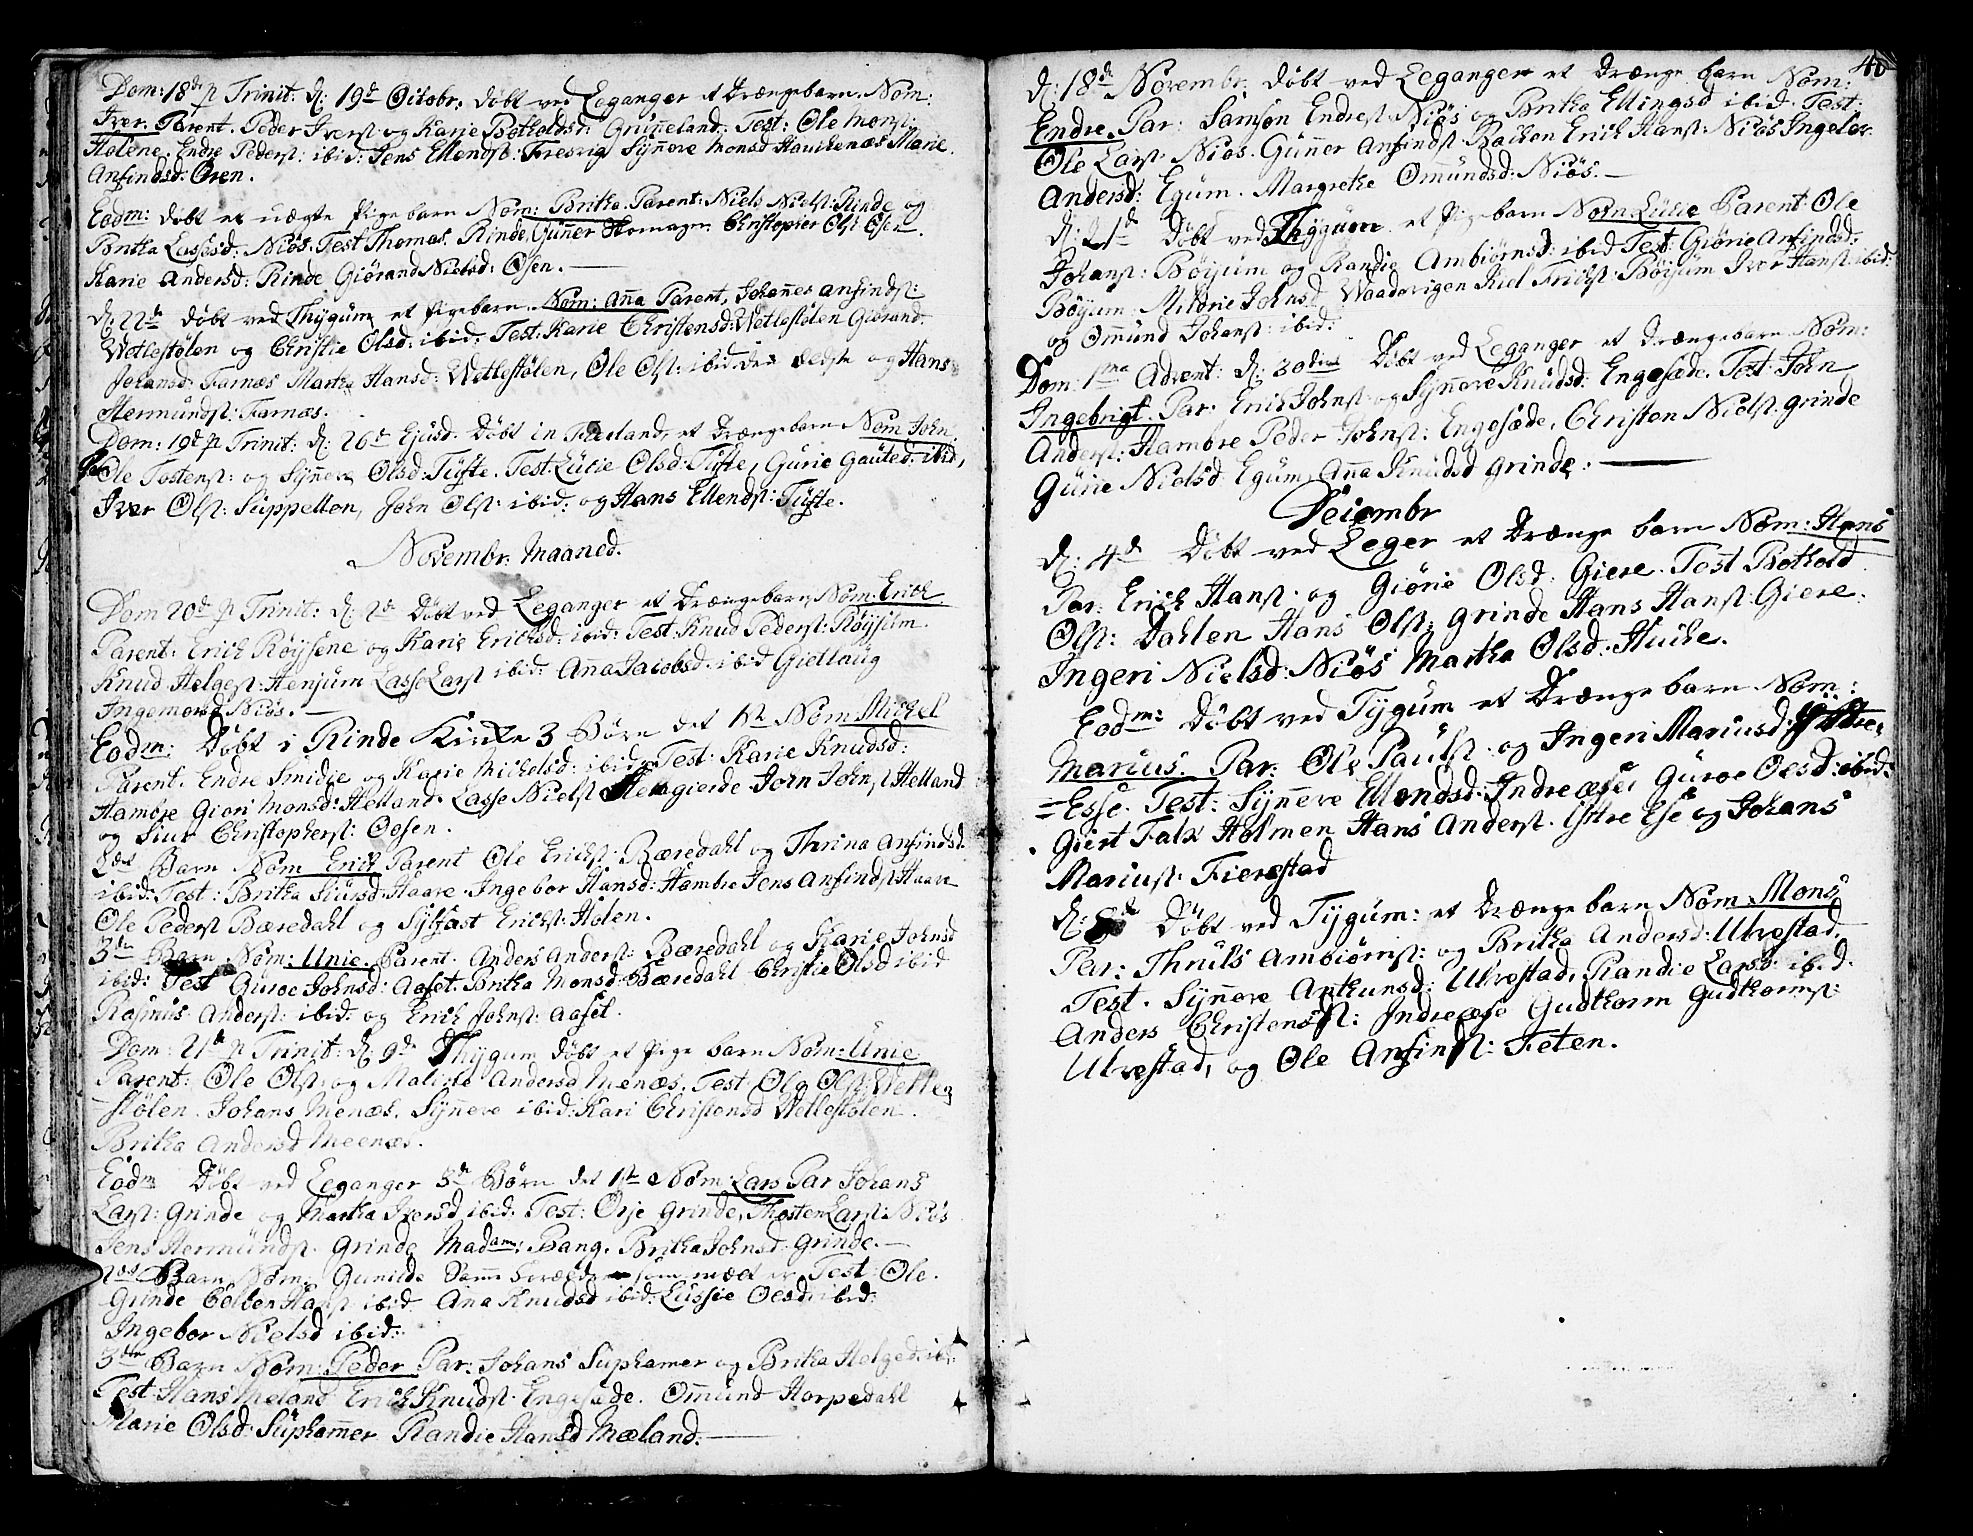 Dom: 18de p Trinit: d: 19de Octobr. døbt ved Leganger et Drængebarn. Nom:
Iver. Parent. Peder Iverst og Karie Botholdsd: Gruneland: Test: Ole Monst:
Holene, Endre Pederst: ibid: Jens Ellendst: Fresvig Synneve Monsd Hauchenæs Marie
Anfindsd: Øren.
Eodm: døbt et uægte Pigebarn Nom: Britha. Parent: Niels Nielst: Rinde og
Britha Lassesd: Niøs. Test Thomas. Rinde, Gunner Christopher Olst Osen.
Karie Andersd: Rinde Giørand Nielsd: Osen.
d: 22de døbt ved Thygum et Pigebarn. Nom: Anna Parent, Johannes Anfindst:
Wetlestølen og Christie Olsd: ibid: Test. Karie Christensd: Wetlestølen Giørand.
Johansd: Farnæs Martha Hansd: Wetlestølen, Ole Olst: ibid: den ældste og Hans
Hermundst: Farnæs.
Dom: 19de p Trinit: d: 26de Ejusd. Døbt in Fierland, et Drængebarn Nom John
Ole Tostenst: og Synneve Olsd: Tufte. Test. Lucie Olsd: Tufte, Gurie Gauted: ibid,
Iver Olst: Suppellen, John Olst: ibid: og Hans Ellendst: Tufte.
Novembr. Maaned.
Dom 20de p Trinit: d: 2de Døbt ved Leganger et Drængebarn, Nom: Erich
Parent. Erich Røysene og Karie Erichsd: ibid: Test: Knud Pederst: Røysum.
Knud Helgest: Henjum Lasse Larst ibid: Anna Jacobsd: ibid Gietlaug
Ingemorsd Niøs.
Eodm: Døbt i Rinde Kirke 3 Børn det 1ste Nom: Michel
Parent. Endre Smidie og Karie Michelsd: ibid: Test: Karie Knudsd:
Hambre Giøri Monsd: Helland. Lasse Nielst gierde Joen Johnst Helland
og Siur Christopherst: Oesen.
2det Barn Nom Erich Parent Ole Erichst: Bæredahl og Thrina Anfindsd.
ibid: Test: Britha Siursd: Haare. Ingebor Hansd: Hambre Jens Anfindst Haare
Ole Pederst Bæredahl og Sylfast Erichst: Holen.
3die Barn Nom: Unie. Parent. Anders Anderst: Bæredahl og Karie Johnsd
ibid: Test Guroe Johnsd: Aaset. Britha Monsd: Bæredahl Christie Olsd ibid
Rasmus Anderst: ibid: og Erich Johnst: Aaset.
Dom: 21de p Trinit: d: 9de Thygum døbt et Pige barn Nom: Unie
Parent: Ole Olst: og Malene Andersd Menæs. Test Ole Olst: Wetle
stølen. Johans Menæs. Synneve ibid: Kari Christensd Wetlestølen.
Britha Andersd Meenæs.
Eodm Døbt ved Leganger 3de Børn det 1ste Nom: Lars Par Johans
Larst: Grinde og Martha Iversd ibid: Test: Orje Grinde, Thosten Larst: Niøs
Jens Hermundst. Grinde Madam: Bang. Britha Johnsd: Grinde.
2det Barn Nom: Gunilde Samme Forældre som næst er Test: Ole.
Grinde Hanst ibid. Ana Knudsd ibid: Lussie Olsd: ibid:
Ingebor Nielsd ibid:
3die Barn Nom: Peder. Par: Johans Suphamer og Britha Helged: ib:
Test. Hans Meland Erich Knudst. Engesæde. Omund Horpedahl
Marie Olsd: Suphamer Randie Hansd Mæland.
40
d: 18de Novembr. Døbt ved Leganger et Drænge barn Nom:
Endre. Par: Samson Endrest. Niøs og Britha Ellingsd ibid. Test:
Ole Larst. Niøs. Gunner Anfindst. Backen Erich Hanst: Niøs Ingebor
Andersd: Egum. Margrethe Omundsd: Niøs.
d: 21de Døbt ved Thygum et Pigebarn Nom: Lucie Parent: Ole
Johanst: Bøyum og Randie Ambiørnsd: ibid Test: Giørie Anfindsd:
Bøyum. Mildrie Johnsd Waadevigen Kiel Erichst: Bøyum Iver Hanst: ibid:
og Omund Johanst: ibid:
Dom: 1ma Advent: d: 30die Døbt ved Leganger et Drængebarn Nom:
Ingebrigt. Par: Erich Johnst: og Synneve Knudsd: Engesæde. Test: John
Anderst: Hambre Peder Johnst: Engesæde, Christen Nielst: Grinde
Gurie Nielsd: Egum, Anna Knudsd Grinde.
Decembr
d: 4de Døbt ved Leger et Drænge barn Nom: Hans
Par: Erich Hanst. og Giørie Olsd. Giere. Test Bothold
Olst: Dahlen Hans Olst: Grinde Hans Hanst: Giere.
Ingeri Nielsd: Niøs Martha Olsd: Huche.
Eodm: Døbt ved Tygum et Drænge barn Nom:
Marius. Par: Ole Paulst. og Ingeri Mariusd:
Esse. Test: Synneve Ellendsd: Indreæse Guroe Oesd: ibid:
Giert Falk Holmen Hans Anderst. Ittre Ese og Johans
Mariust. Fierestad
d: 8de Døbt ved Tygum: et Drænge barn Nom Mons
Par: Thruls Ambiørnst: og Britha Andersd: Ulvestad.
Test. Synneve Anthunsd: Ulvestad, Randie Larsd: ibid.
Anders Christenst: Indreæse Gudthorm Gudthormst:
Ulvestad, og Ole Anfindst: Feten.